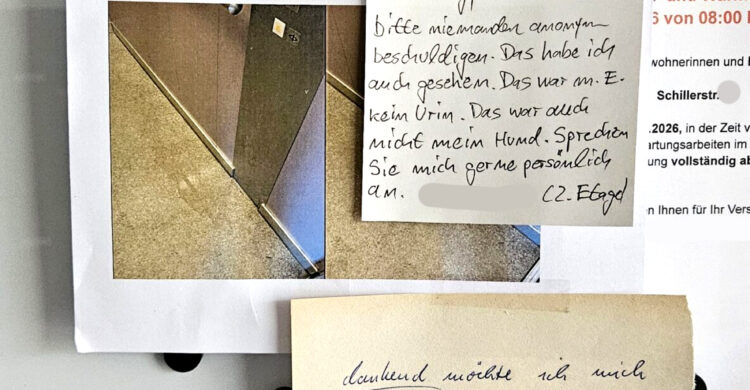 bitte niemanden anonym
beschuldigen. Das habe ich
auch gesehen. Das war m. E.
kein Urin. Das war auch
nicht mein Hund. Sprechen
Sie mich gerne persönlich
an.
(2. Etage)
6 von 08:00
wohnerinnen und
Schillerstr.
.2026, in der Zeit v
artungsarbeiten im
ung vollständig ab
n Ihnen für Ihr Vers
dankend möchte ich mich